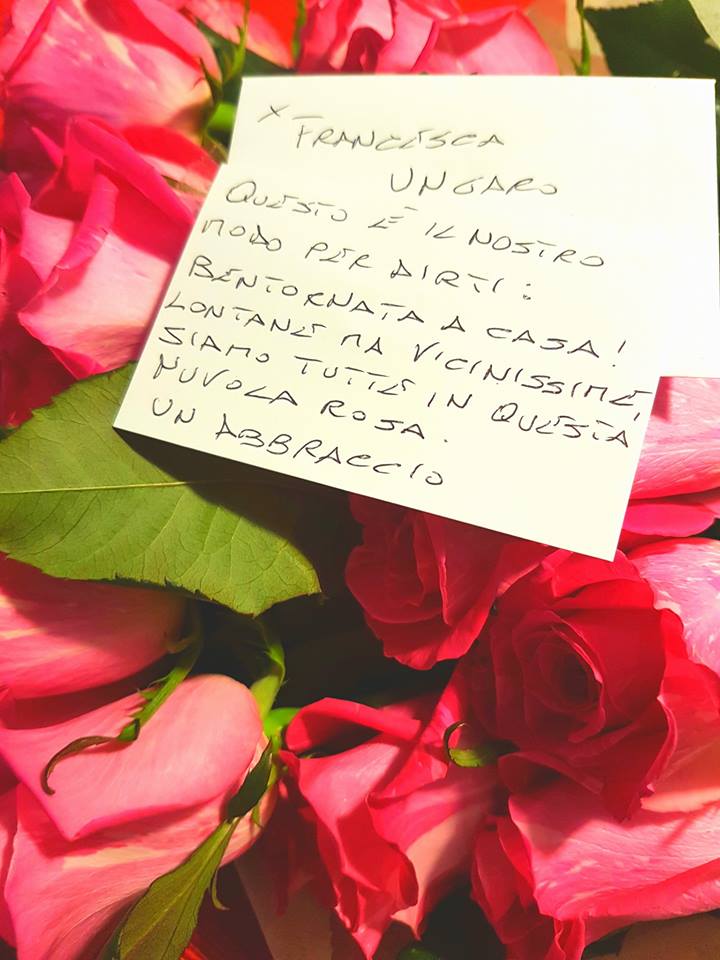 x FRANCESCA
UNGARO
QUESTO È IL NOSTRO
MODO PER DIRTI:
BENTORNATA A CASA!
LONTANE MA VICINISSIME,
SIAMO TUTTE IN QUESTA
NUVOLA ROSA.
UN ABBRACCIO